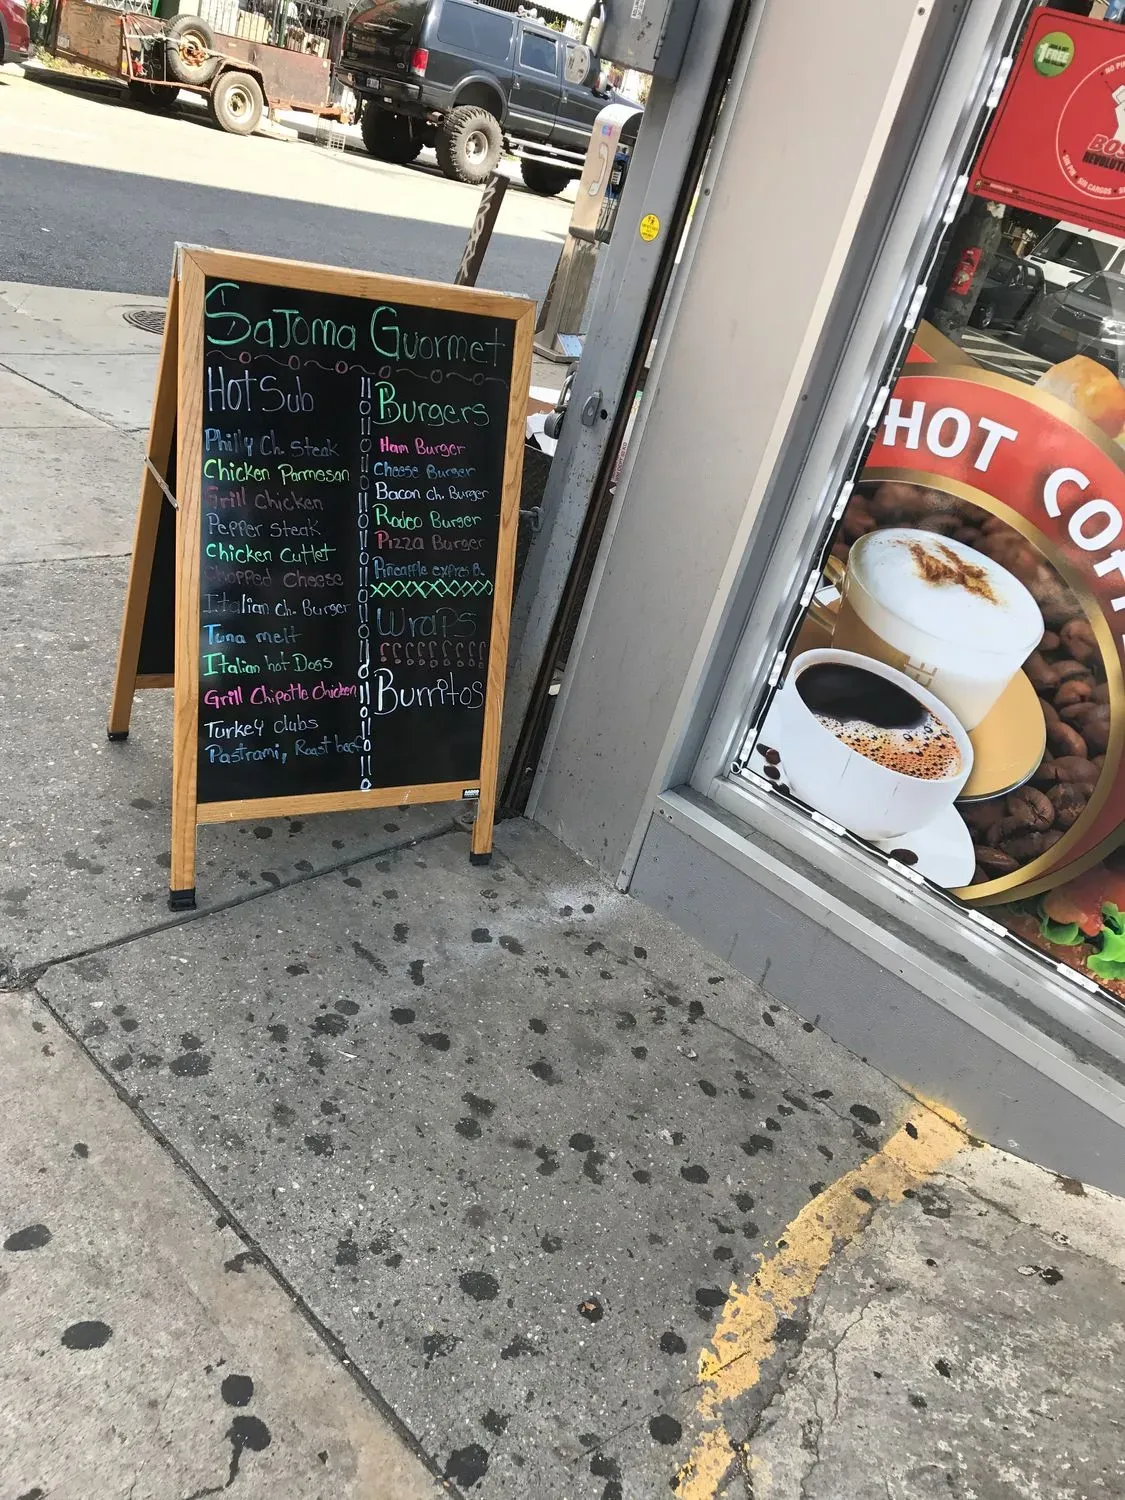 SaJoma Guormet
Hot Sub
Philly Ch. Steak
Chicken Parmesan
Grill Chicken
Pepper Steak
Chicken Cutlet
Chopped Cheese
Italian Ch. Burger
Tuna melt
Italian hot Dogs
Grill Chipotle Chicken
Turkey clubs
Pastrami, Roast beef
Burgers
Ham Burger
Cheese Burger
Bacon Ch. Burger
Rodeo Burger
Pizza Burger
Pineapple expres B.
Wraps
Burritos
HOT
FREE
SIN PIN • SIN CARGOS